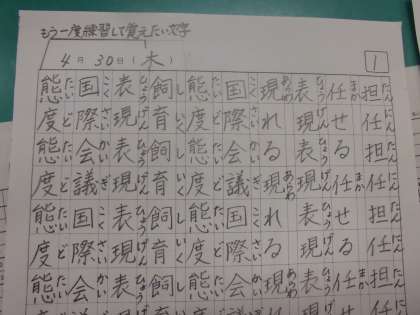 もう一度練習して覚えたい文字
4月30日(木)
1
担たん任にん担たん任にん担たん任にん担たん任にん
任まかせる任まかせる任まかせ
表ひょう現げん表ひょう現げん表ひょう現げん表ひょう現げん
現あらわれる現あらわれる現あらわれ
国こく際さい会かい議ぎ国こく際さい会かい議ぎ
態たい度ど態たい度ど態たい度ど態たい度ど
飼し育いく飼し育いく飼し育いく飼し育いく
表ひょう現げん表ひょう現げん表ひょう現げん表ひょう現げん
国こく際さい会かい議ぎ国こく際さい会かい議ぎ
態たい度ど態たい度ど態たい度ど態たい度ど